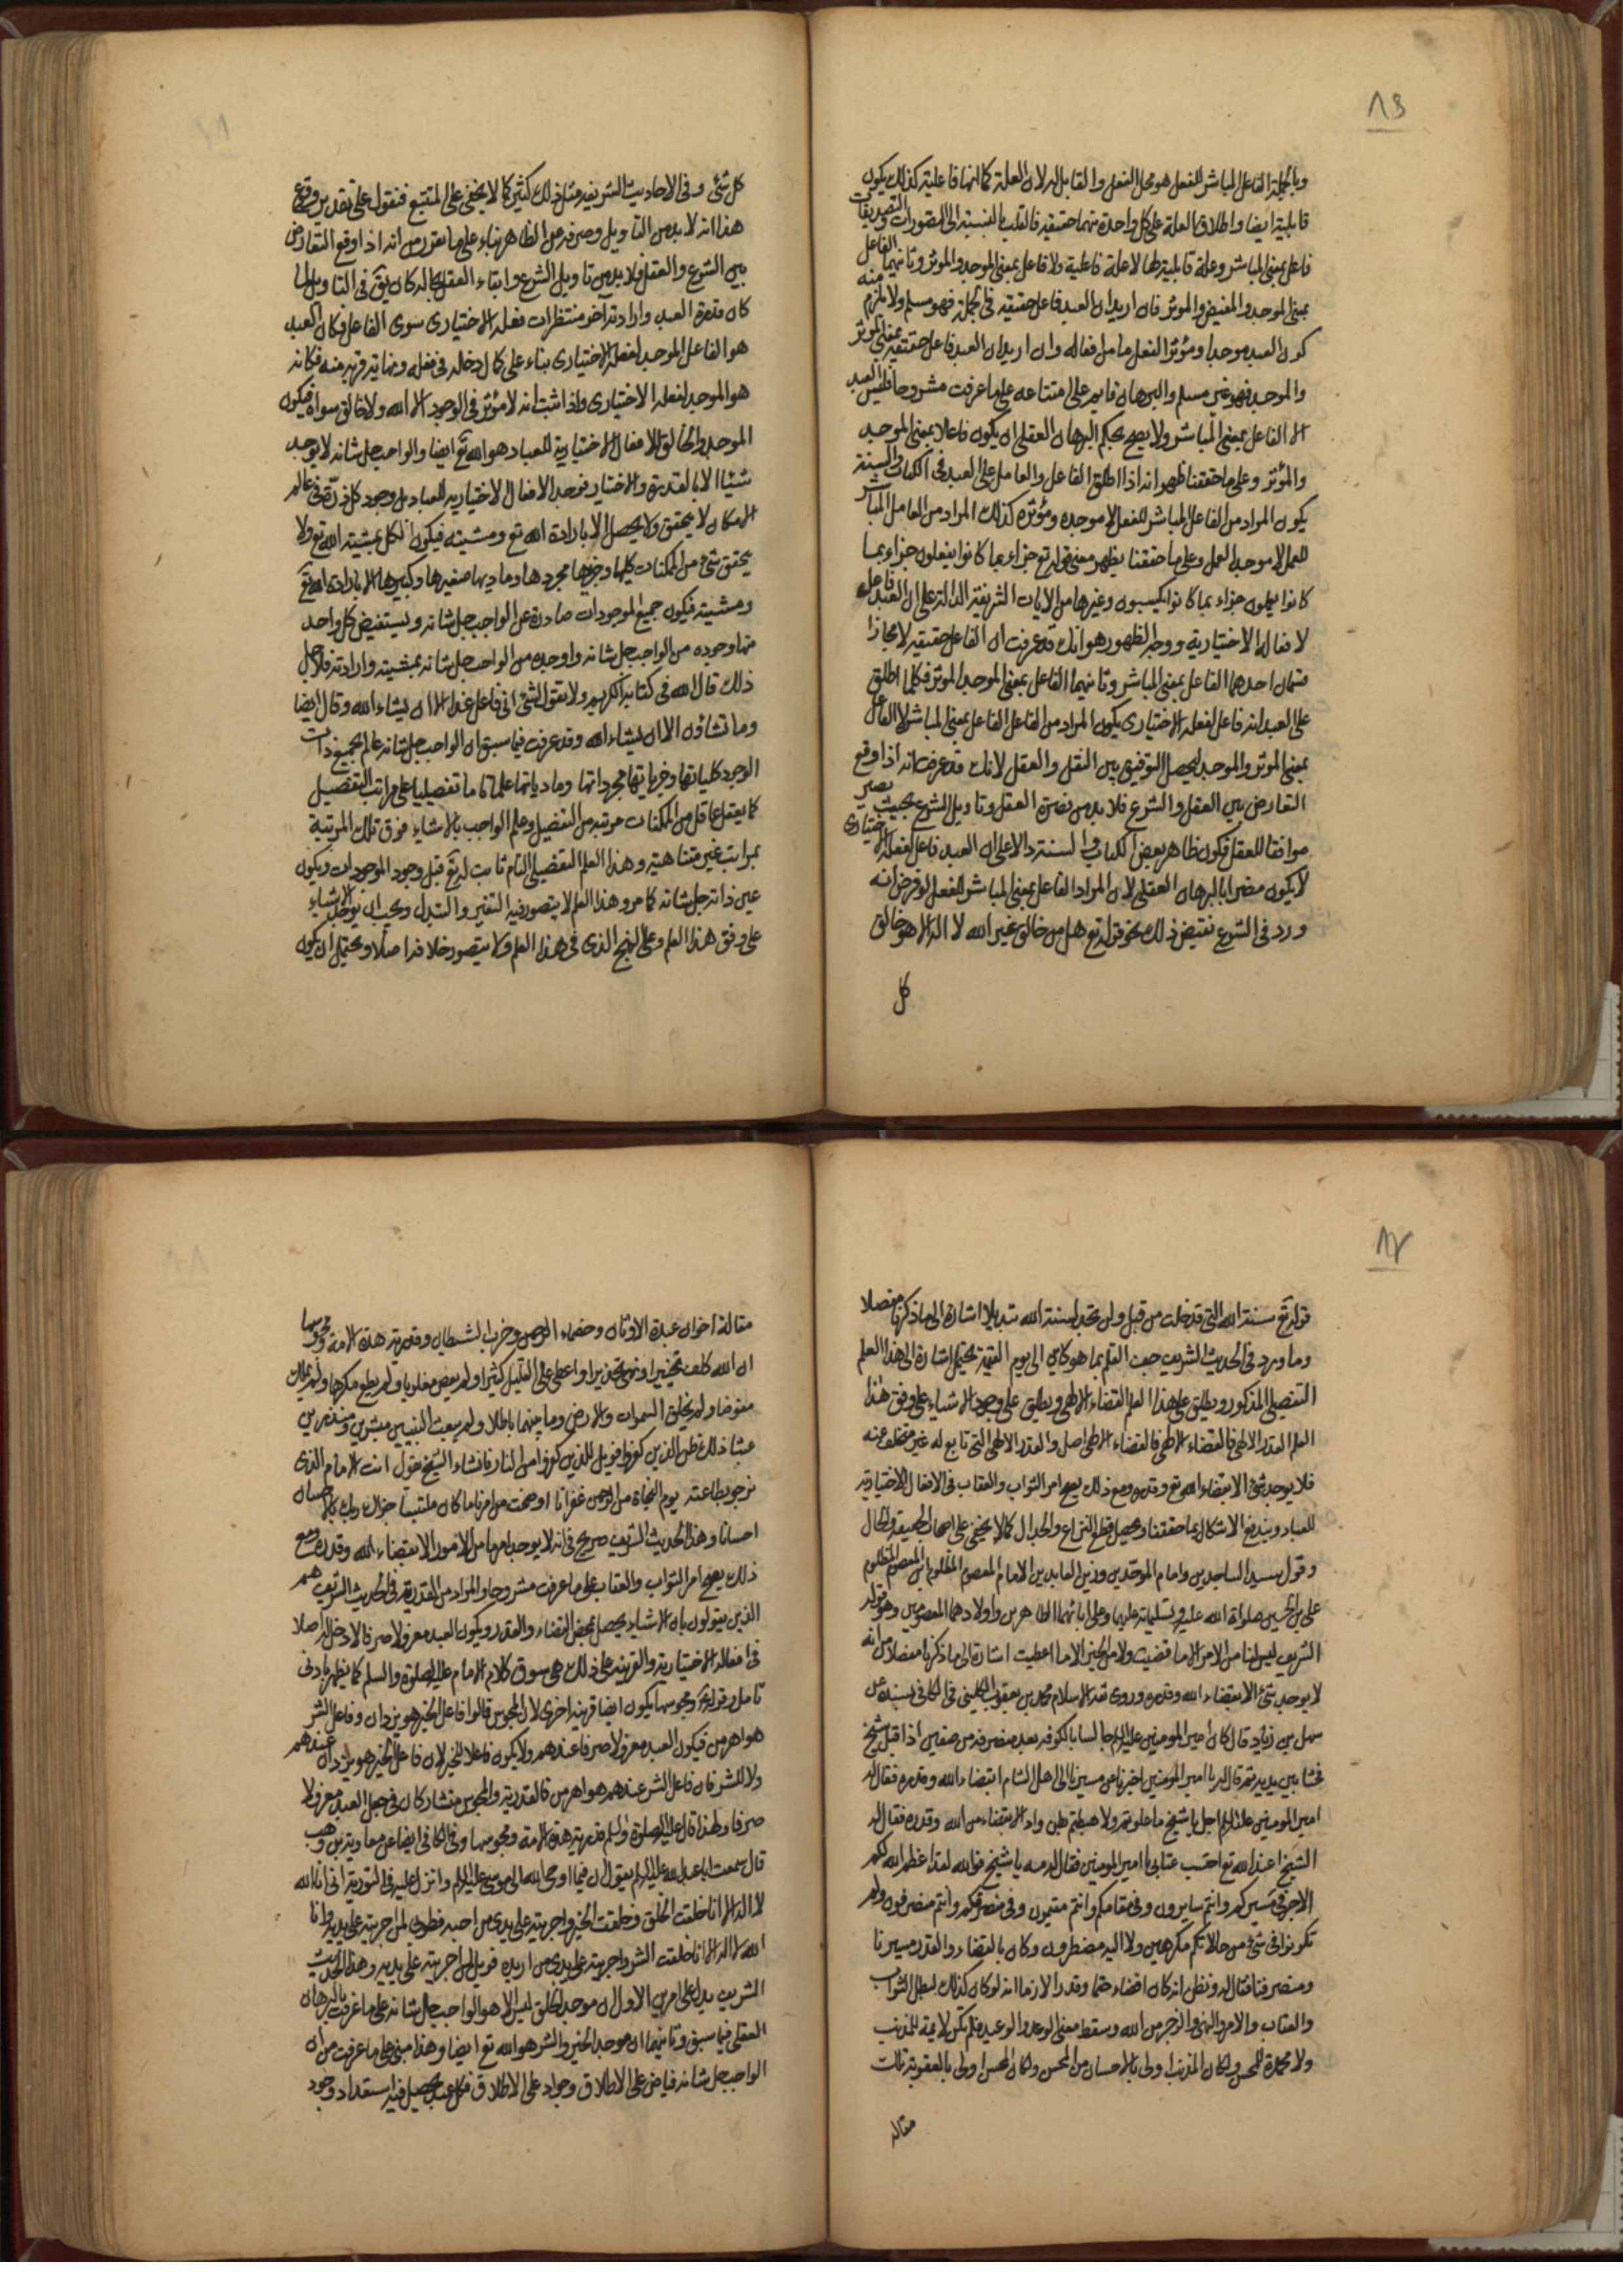 ٨٦
وبالجملة الفاعل المباشر للفعل هو محل الفعل والقابل له لان العلة كما انها فاعلية كذلك يكون
قابلية ايضا واطلاق العلة على كل واحدة منهما حقيقية فالقلب بالنسبة الى التصورات والتصديقات
فاعل بمعنى المباشر وعلة قابلية لها لا علة فاعلية ولا فاعل بمعنى الموجد والموثر وثانيهما الفاعل
بمعنى الموجد والمفيض والموثر فان اريد ان العبد فاعل حقيقة في الجملة فهو مسلم ولا يلزم منه
كون العبد موجدا ومؤثرا لفعل ما من افعاله وان اريد ان العبد فاعل حقيقة بمعنى الموثر
والموجد فهو غير مسلم والبرهان قايم على امتناعه على ما عرفت مشروحا فليس العبد
الا الفاعل بمعنى المباشر ولا يصح بحكم البرهان العقلي ان يكون فاعلا بمعنى الموجد
والمؤثر وعلى ما حققنا ظهر انه اذا اطلق الفاعل والعامل على العبد في الكتاب والسنة
يكون المراد من الفاعل المباشر للفعل لا موجده ومؤثره كذلك المراد من العامل المباشر
للعمل لا موجد العمل وعلى ما حققنا يظهر معنى قوله تع جزاء بما كانوا يفعلون جزاء بما
كانوا يعملون جزاء بما كانوا يكسبون وغيرها من الايات الشريفة الدالة على ان العبد فاعل
لافعاله الاختيارية ووجه الظهور هو انك قد عرفت ان الفاعل حقيقة لا مجازا
قسمان احدهما الفاعل بمعنى المباشر وثانيهما الفاعل بمعنى الموجد الموثر فكلما اطلق
على العبد انه فاعل لفعله الاختياري يكون المراد من الفاعل الفاعل بمعنى المباشر لا الفاعل
بمعنى الموثر والموجد ليحصل التوفيق بين النقل والعقل لانك قد عرفت انه اذا وقع
التعارض بين العقل والشرع فلا بد من نصرة العقل وتاويل الشرع بحيث يصير
موافقا للعقل فيكون ظاهر بعض الكتاب والسنة دالا على ان العبد فاعل لفعله الاختياري
لا يكون مضرا بالبرهان العقلي لان المراد الفاعل بمعنى المباشر للفعل لو فرض انه
ورد في الشرع نقيض ذلك نحو قوله تع هل من خالق غير الله لا اله الا هو خالق
كل
كل شئ وفي الاحاديث الشريفة مثل ذلك كثير كما لا يخفى على المتتبع فنقول على تقدير وقوع
هذا انه لا بد من التاويل وصرفه عن الظاهر بناء على ما تقرر من انه اذا وقع التعارض
بين الشرع والعقل فلا بد من تاويل الشرع وابقاء العقل بحاله كان يق في التاويل لما
كان قدرة العبد وارادته آخر منتظرات فعله الاختياري سوى الفاعل فكان العبد
هو الفاعل الموجد لفعله الاختياري بناء على كمال دخله في فعله ونهاية قربه منه فكانه
هو الموجد لفعله الاختياري واذا ثبت انه لا مؤثر في الوجود الا الله ولا خالق سواه فيكون
الموجد والخالق لافعال الاختيارية للعباد هو الله تع ايضا والواجب جل شانه لا يوجد
شيئا الا بالقدرة والاختيار فوجد الافعال الاختيارية للعباد بل وجود كل ذرة في عالم
الامكان لا يتحقق ولا يحصل الا بارادة الله تع ومشيته فيكون الكل بمشية الله تع ولا
يتحقق شئ من الممكنات كليها وجزيها مجردها وماديها صغيرها وكبيرها الا بارادة الله تع
ومشيته فيكون جميع الموجودات صادرة عن الواجب جل شانه ويستفيض كل واحد
منها وجوده من الواجب جل شانه واوجده من الواجب جل شانه بمشيته وارادته فلاجل
ذلك قال الله في كتابه الكريم ولا تقولن لشئ انى فاعل غدا الا ان يشاء الله وقال ايضا
وما تشاؤن الا ان يشاء الله وقد عرفت فيما سبق ان الواجب جل شانه عالم بجميع ذرات
الوجود كلياتها وجزياتها مجرداتها ومادياتها علما تاما تفصيليا على مراتب التفصيل
كما يعقل عاقل من الممكنات مرتبة من التفضيل وعلم الواجب بالاشياء فوق تلك المرتبة
بمراتب غير متناهية وهذا العلم التفضيلي التام ثابت له تع قبل وجود الموجودات ويكون
عين ذاته جل شانه كما مر وهذا العلم لا يتصور فيه التغير والتبدل ويجب ان يوجد الاشياء
على وفق هذا العلم وعلى النهج الذى فى هذا العلم ولا يتصور خلافه اصلا ويحتمل ان يكون
٨٧
قوله تع سنة الله التي قد خلت من قبل ولن تجد لسنة الله تبديلا اشارة الى ما ذكرنا مفصلا
وما ورد في الحديث الشريف جف القلم بما هو كاين الى يوم القيمة يحتمل اشارة الى هذا العلم
التفصيلي المذكور ويطلق على هذا العلم القضاء الالهي ويطلق على وجود الاشياء على وفق هذا
العلم القدر الالهي فالقضاء الالهي فالقضاء الالهي اصل والقدر الالهي التي تابع له غير متخلف عنه
فلا يوجد شئ الا بقضاء الله تع وقدره ومع ذلك يصح امر الثواب والعقاب في الافعال الاختيارية
للعباد ويندفع الاشكال بما حققنا ويحصل قطع النزاع والجدال كما لا يخفى على اصحاب الحقيقة والحال
وقول سيد الساجدين وامام الموحدين وزين العابدين الامام المعصوم المظلوم ابن المعصوم المظلوم
علي بن الحسين صلواة الله عليه وتسليماته عليهما وعلى ابائهما الطاهرين واولادهما المعصومين وهو قوله
الشريف ليس لنا من الامر الا ما قضيت ولا من الخير الا ما اعطيت اشارة الى ما ذكرنا مفصلا من انه
لا يوجد شئ الا بقضاء الله وقدره وروى ثقة الاسلام محمد بن يعقوب الكليني في الكافي بسنده عن
سهل بن زياد قال كان امير المومنين عليه السلام جالسا بالكوفة بعد منصرفه من صفين اذ اقبل شيخ
فجثا بين يديه ثم قال له يا امير المومنين اخبرنا عن مسيرنا الى اهل الشام ابقضاء الله وقدره فقال له
امير المومنين عليه السلام اجل يا شيخ ما علوتم ولا هبطتم بطن واد الا بقضاء من الله وقدره فقال له
الشيخ اعند الله تع احتسب عنايي يا امير المومنين فقال له مه يا شيخ فوالله لقد اعظم الله لكم
الاجر في مسيركم وانتم سايرون وفي مقامكم وانتم مقيمون وفي منصرفكم وانتم منصرفون ولم
تكونوا في شئ من حالاتكم مكرهين ولا اليه مضطرون وكان بالقضاء والقدر مسيرنا
ومنصرفنا فقال له وتظن انه كان قضاء حتما وقدرا لازما انه لو كان كذلك لبطل الثواب
والعقاب والامر والنهي والزجر من الله وسقط معنى الوعد والوعيد فلم تكن لايمة للمذنب
ولا محمدة للمحسن ولكان المذنب اولى بالاحسان من المحسن ولكان المحسن اولى بالعقوبة تلك
مقاله
مقالة اخوان عبدة الاوثان وخصماء الرحمن وحزب الشيطان وقدرية هذه الامة ومجوسها
ان الله كلف تخييرا ونهى تحذيرا واعطى على القليل كثيرا ولم يعص مغلوبا ولم يطع مكرها ولم يملك
مفوضا ولم يخلق السموات والارض وما بينهما باطلا ولم يبعث النبيين مبشرين ومنذرين
عبثا ذلك ظن الذين كفروا فويل للذين كفروا من النار فانشاء الشيخ يقول انت الامام الذى
نرجو بطاعته يوم النجاة من الرحمن غفرانا اوضحت من امرنا ما كان ملتبسا جزاك ربك بالاحسان
احسانا وهذا الحديث الشريف صريح في انه لا يوجد امر ما من الامور الا بقضاء الله وقدره ومع
ذلك يصح امر الثواب والعقاب على ما عرفت مشروحا والمراد من القدرية في الحديث الشريف هم
الذين يقولون بان الاشياء يحصل بمحض القضاء والقدر ويكون العبد معزولا صرفا لا دخل له اصلا
في افعاله الاختيارية والقرينة على ذلك هي سوق كلام الامام عليه الصلوة والسلم كما يظهر بادنى
تامل وقوله ومجوسها يكون ايضا قرينة اخرى لان المجوس قالوا فاعل الخير هو يزدان وفاعل الشر
هو اهرمن فيكون العبد معزولا صرفا عندهم ولا يكون فاعلا للخير لان فاعل الخير هو يزدان عندهم
ولا للشر فان فاعل الشر عندهم هو اهرمن فالقدرية والمجوس متشاركان في جعل العبد معزولا
صرفا ولهذا قال عليه الصلوة والسلم قدرية هذه الامة ومجوسها وفي الكافي ايضا عن معاوية بن وهب
قال سمعت ابا عبد الله عليه السلام يقول ان فيما اوحى الله الى موسى عليه السلام وانزل عليه في التورية انى انا الله
لا اله الا انا خلقت الخلق وخلقت الخير واجريته على يدي من احب فطوبى لمن اجريته على يديه وانا
الله لا اله الا انا خلقت الشر واجريته على يدي من اريده فويل لمن اجريته على يديه وهذا الحديث
الشريف يدل على امرين الاول ان موجد الخلق ليس الا هو الواجب جل شانه على ما عرفت بالبرهان
العقلي فيما سبق وثانيهما ان موجد الخير والشر هو الله تع ايضا وهذا مبنى على ما عرفت من ان
الواجب جل شانه فياض على الاطلاق وجواد على الاطلاق فكل عبد يحصل فيه استعداد وجود